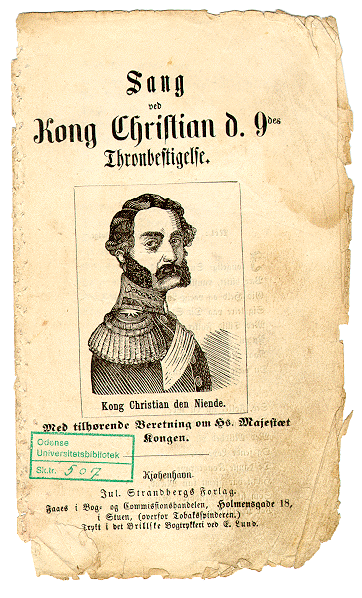 Sang
ved
Kong Christian d. 9des
Thronbestigelse.
Kong Christian den Niende.
Med tilhørende Beretning om Hs. Majestæt
Kongen.
Odense
Universitetsbibliotek
Sk.tr. 507
Kjøbenhavn.
Jul. Strandbergs Forlag.
Faaes i Bog- og Commissionshandelen, Holmensgade 18,
i Stuen, (overfor Tobaksspinderen.)
Trykt i det Brillske Bogtrykkeri ved E. Lund.